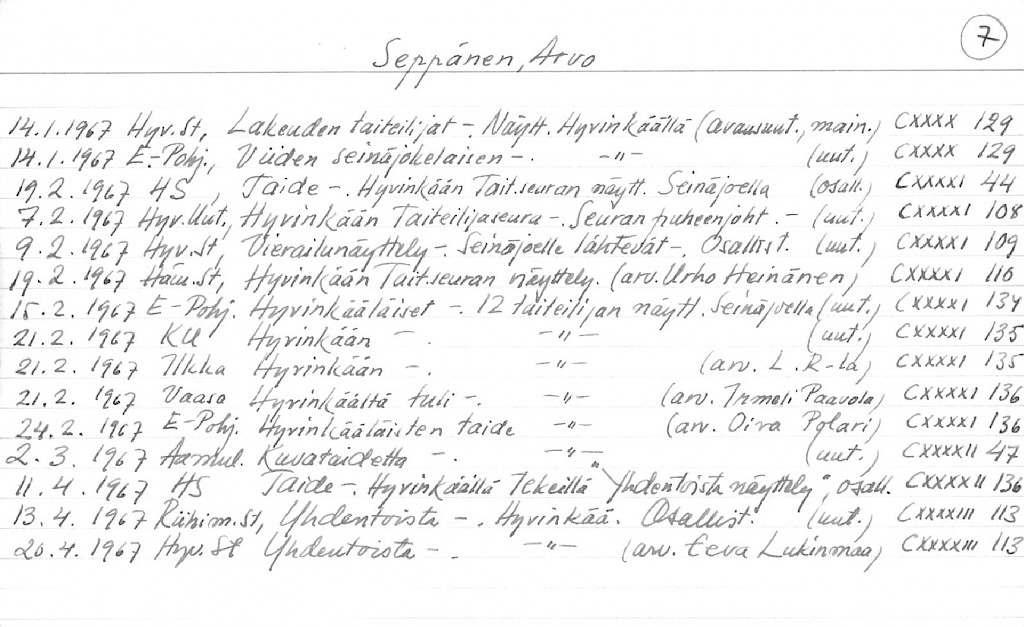 7
Seppänen, Arvo
14.1.1967 Hyv.St, Lakeuden taiteilijat -. Näytt. Hyvinkäällä (avausuut., main.) CXXXX 129
14.1.1967 E.-Pohj., Viiden seinäjokelaisen -. -"- (uut.) CXXXX 129
19.2.1967 HS, Taide -. Hyvinkään Tait.seuran näytt. Seinäjoella (osall.) CXXXXI 44
7.2.1967 Hyv.Uut., Hyvinkään Taiteilijaseura -. Seuran puheenjoht. - (uut.) CXXXXI 108
9.2.1967 Hyv.St, Vierailunäyttely -. Seinäjoelle lähtevät -. Osallist. (uut.) CXXXXI 109
19.2.1967 Häm.St, Hyvinkään Tait.seuran näyttely. (arv. Urho Heinänen) CXXXXI 110
15.2.1967 E-Pohj. Hyvinkääläiset -. 12 taiteilijan näytt. Seinäjoella (uut.) CXXXXI 134
21.2.1967 KU Hyvinkään -. -"- (uut.) CXXXXI 135
21.2.1967 Ilkka Hyvinkään -. -"- (arv. L.R-la) CXXXXI 135
21.2.1967 Vaasa Hyvinkäältä tuli -. -"- (arv. Irmeli Paavola) CXXXXI 136
24.2.1967 E-Pohj. Hyvinkääläisten taide -"- (arv. Oiva Polari) CXXXXI 136
2.3.1967 Aamul. Kuvataidetta -. -"- (uut.) CXXXXII 47
11.4.1967 HS Taide -. Hyvinkäällä Tekeillä "Yhdentoista näyttely", osall. CXXXXII 136
13.4.1967 Riihim.St, Yhdentoista -. Hyvinkää. Osallist. (uut.) CXXXXIII 113
20.4.1967 Hyv.St Yhdentoista -. -"- (arv. Eeva Lukinmaa) CXXXXIII 113